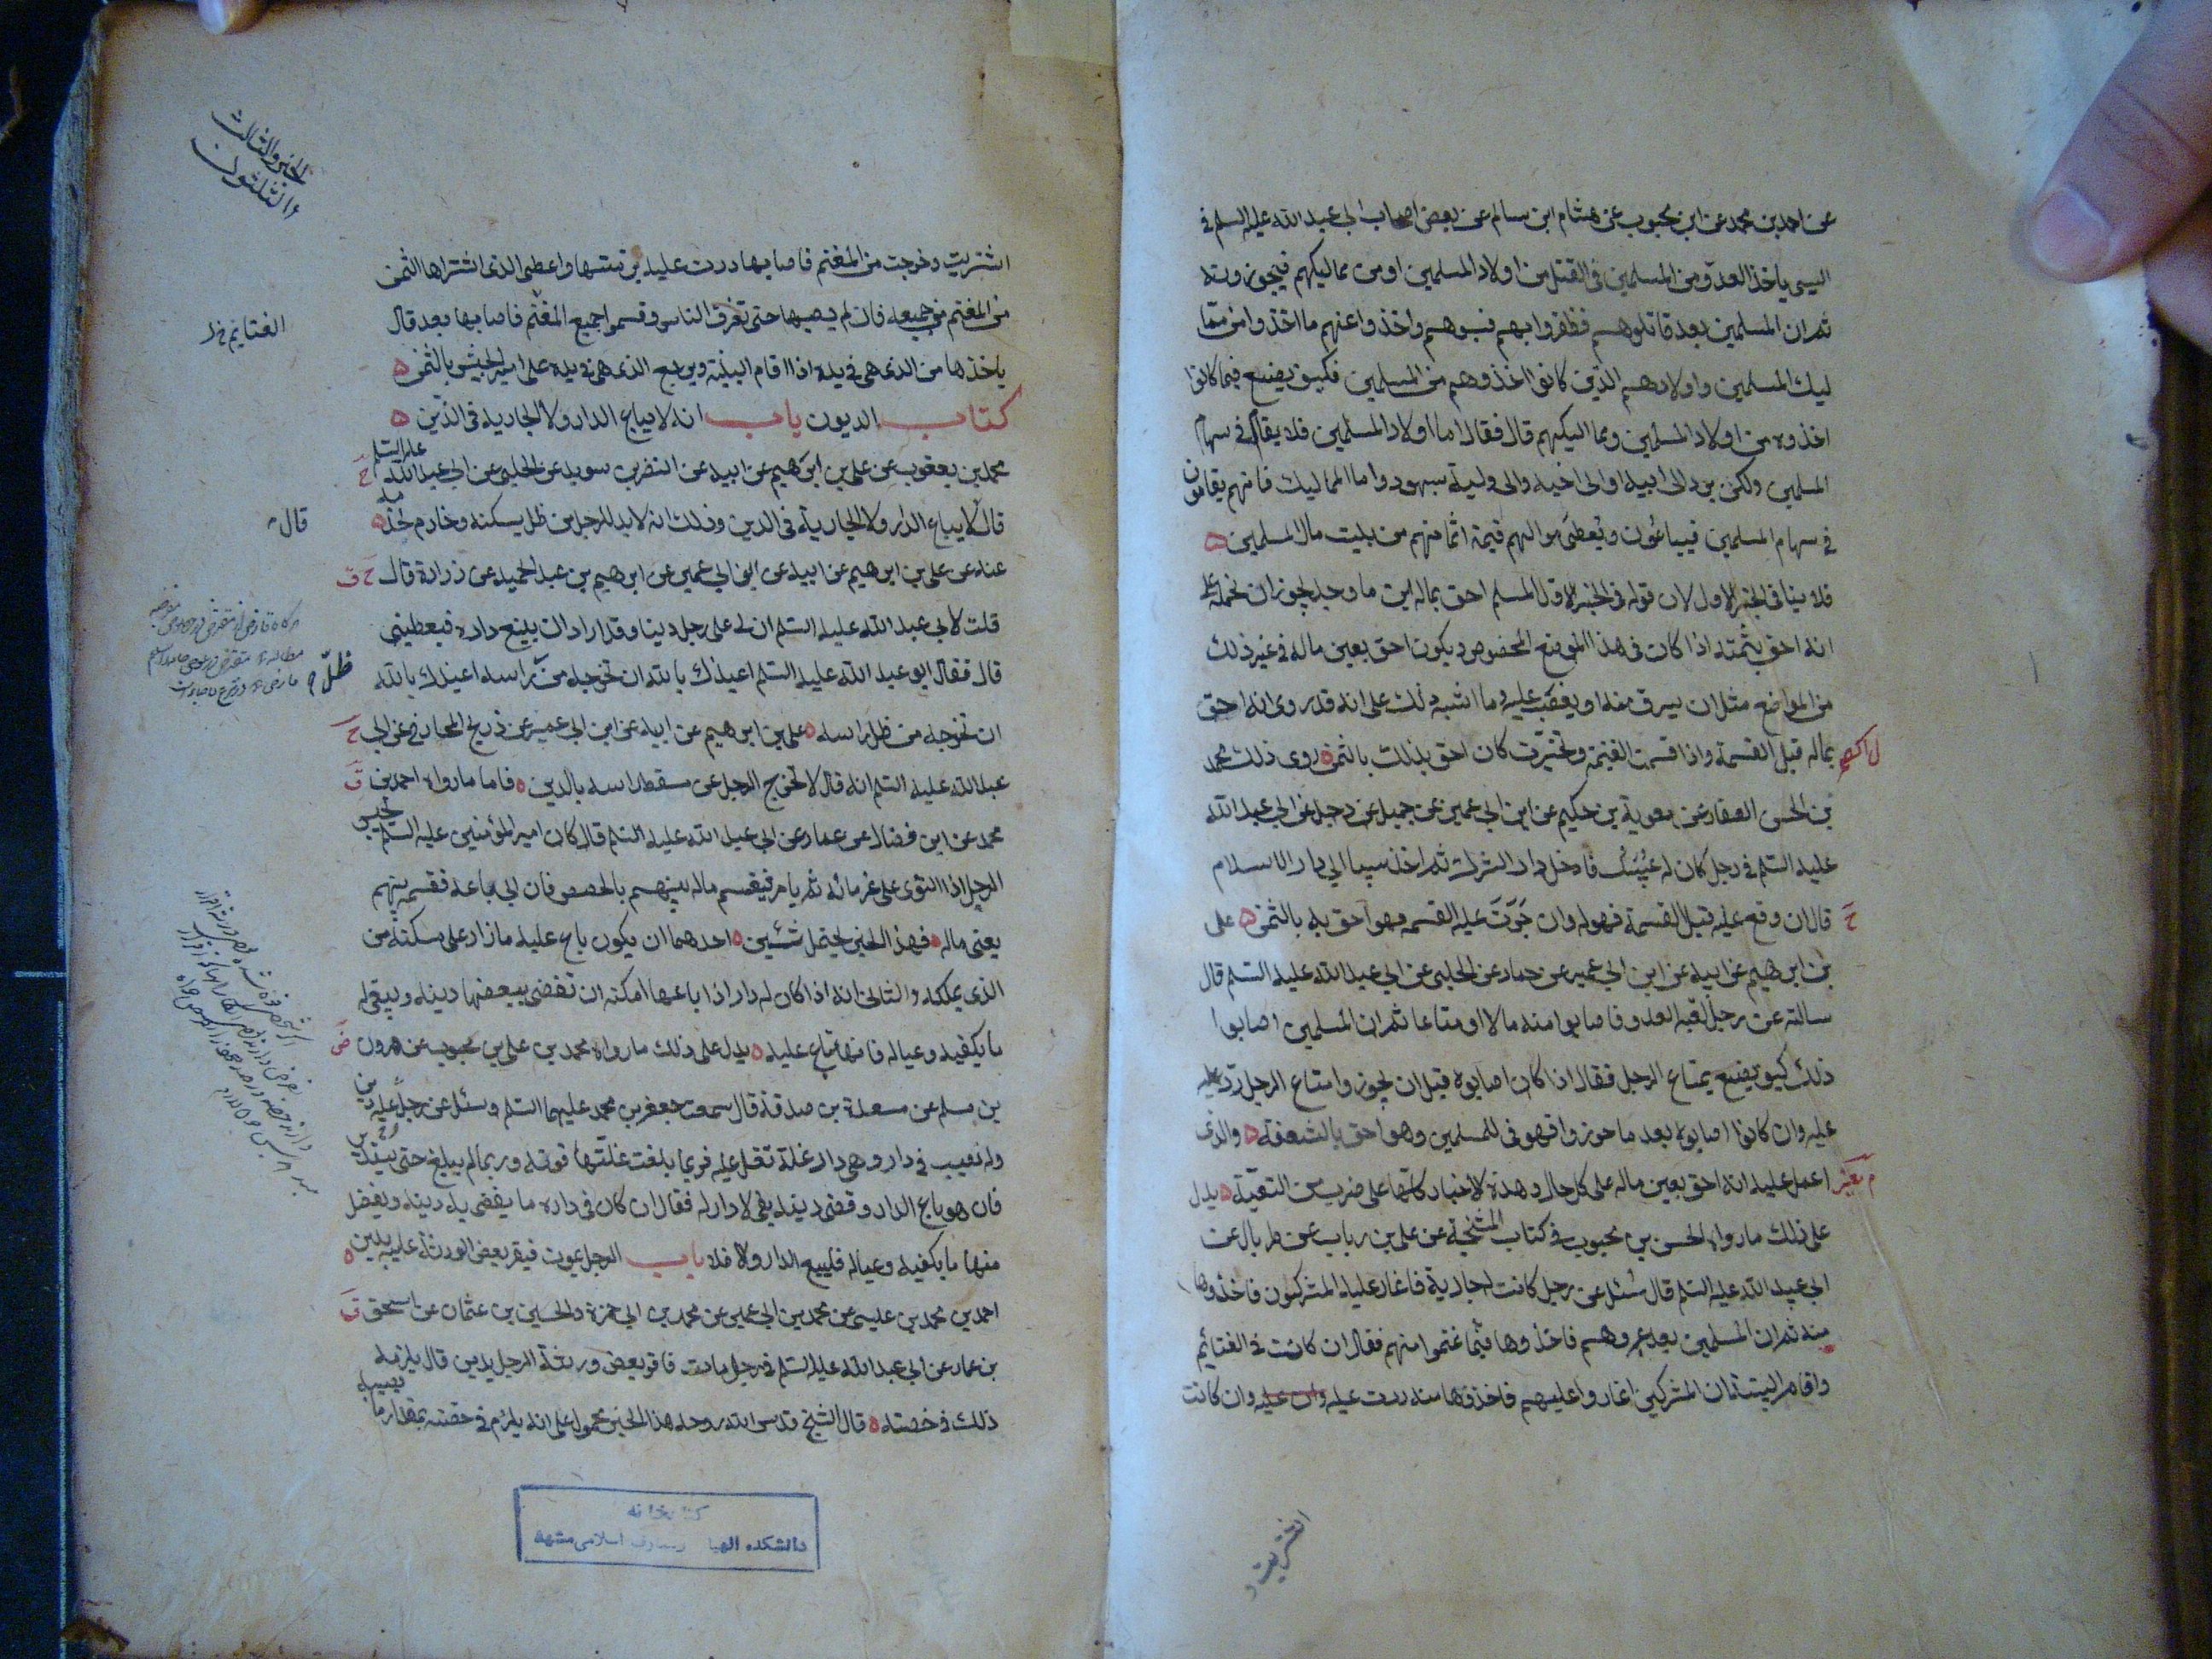 عن احمد بن محمد عن ابن محبوب عن هشام ابن سالم عن بعض اصحاب ابي عبد الله عليه السلم في
السبي ياخذ العدو من المسلمين في القتل من اولاد المسلمين او من مماليكهم فيحوزونه
ثم ان المسلمين بعد قاتلوهم فظفروا بهم فسبوهم واخذوا عنهم ما اخذوا من مما
ليك المسلمين واولادهم الذين كانوا اخذوهم من المسلمين فكيف يصنع فيما كانوا
اخذوه من اولاد المسلمين ومماليكهم قال فقال اما اولاد المسلمين فلا يقام في سهام
المسلمين ولكن يرد الى ابيه او الى اخيه والى وليه بشهود واما المماليك فانهم يقامون
في سهام المسلمين فيباعون ويعطى مواليهم قيمة اثمانهم من بيت مال المسلمين
فلا ينافي الخبر الاول لان قوله في الخبر الاول المسلم احق بماله اين ما وجده يجوز ان نحمله على
انه احق بثمنه اذا كان في هذا الموضع المخصوص ويكون احق بعين ماله في غير ذلك
من المواضع مثل ان يسرق منه او يغصب عليه وما اشبه ذلك على انه قد روى انه احق
بماله قبل القسمة واذا قسمت الغنيمة وتحيزت كان احق بذلك بالثمن روى ذلك محمد
بن الحسن الصفار عن معوية بن حكيم عن ابن ابي عمير عن جميل عن رجل عن ابي عبد الله
عليه السلم في رجل كان له عبد فادخل دار الشرك ثم اخذ سبيا الى دار الاسلام
قال ان وقع عليه قبل القسمة فهو له وان جرت عليه القسمه فهو احق به بالثمن على
بن ابرهيم عن ابيه عن ابن ابي عمير عن حماد عن الحلبي عن ابي عبد الله عليه السلم قال
سالته عن رجل لقيه العدو فاصابوا منه مالا او متاعا ثم ان المسلمين اصابوا
ذلك كيف يصنع بمتاع الرجل فقال اذا كان اصابوه قبل ان يحوزوا متاع الرجل رد عليه
عليه وان كانوا اصابوه بعد ما حوزوا فهو في للمسلمين وهو احق بالشفعة والذى
اعمل عليه انه احق بعين ماله على كل حال وهذه الاخبار كلها على ضرب من التقية يدل
على ذلك ما رواه الحسن بن محبوب في كتاب المشيخة عن علي بن رباب عن طربال عن
ابي عبد الله عليه السلم قال سئل عن رجل كانت له جارية فاغار عليه المشركون فاخذوها
منه ثم ان المسلمين بعد غزوهم فاخذوها فيما غنموا منهم فقال ان كانت في الغنايم
واقام البينة ان المشركين اغاروا عليهم فاخذوها منه ردت عليه وان عليه وان كانت
اشتريت و
الجزو الثالث
والثلثون
اشتريت وخرجت من المغنم فاصابها ردت عليه برمتها واعطى الذى اشتراها الثمن
من المغنم من جميعه فان لم يصبها حتى تفرق الناس وقسموا جميع المغنم فاصابها بعد قال
ياخذها من الذى هى في يده اذا اقام البينة ويرجع الذى هى في يده على امير الجيش بالثمن
الغنايم خ
كتاب الديون باب انه لا يباع الدار ولا الجاريه في الدين
محمد بن يعقوب عن علي بن ابرهيم عن ابيه عن النضر بن سويد عن الحلبي عن ابي عبد الله عليه السلم
قال لا يباع الدار ولا الجارية في الدين وذلك انه لابد للرجل من ظل يسكنه وخادم يخدمه
قال
عنه عن علي بن ابرهيم عن ابيه عن ابن ابي عمير عن ابرهيم بن عبد الحميد عن زرارة قال
قلت لابي عبد الله عليه السلم ان لي على رجل دينا وقد اراد ان يبيع داره فيعطيني
قال فقال ابو عبد الله عليه السلم اعيذك بالله ان تخرجه من راسه اعيذك بالله
ظل
ان تخرجه من ظل راسه علي بن ابرهيم عن ابيه عن ابن ابي عمير عن ذريح المحاربي عن ابي
عبد الله عليه السلم انه قال لا يخرج الرجل عن مسقط راسه بالدين فاما ما رواه احمد بن
محمد عن ابن فضال عن عمار عن ابي عبد الله عليه السلم قال كان امير المؤمنين عليه السلم يحبس
الرجل اذا التوى على غرمائه ثم يامر فيقسم ماله بينهم بالحصص فان ابى باعه فقسمه بينهم
يعني ماله فهذا الخبر يحتمل شيئين احدهما ان يكون باع عليه ما زاد على مسكنه من
الذى يملكه والثاني انه اذا كان له دار اذا باعها امكنه ان تقضى ببعضها دينه ويبقى له
ما يكفيه وعياله فانها تباع عليه يدل على ذلك ما رواه محمد بن علي بن محبوب عن هرون
بن مسلم عن مسعدة بن صدقة قال سمعت جعفر بن محمد عليهما السلم وسئل عن رجل عليه دين
وله نصيب في دار وهى دار غلة تغل عليه فربما بلغت غلتها قوته وربما لم يبلغ حتى يستدين
فان هو باع الدار وقضى دينه بقي لا دار له فقال ان كان في داره ما يقضى به دينه ويفضل
منها ما يكفيه وعياله فليبيع الدار ولا فلا باب الرجل يموت فيقر بعض الورثة عليه بدين
احمد بن محمد بن عيسى عن محمد بن ابي عمير عن محمد بن ابي حمزة والحسين بن عثمان عن اسحق
بن عمار عن ابي عبد الله عليه السلم في رجل مات فاقر بعض ورثة الرجل بدين قال يلزمه
ذلك في حصته قال الشيخ قدس الله روحه هذا الخبر محمول على انه يلزم في حصته بمقدار ما يصيبه
كتابخانه
دانشكده الهيا ومعارف اسلامى مشهد